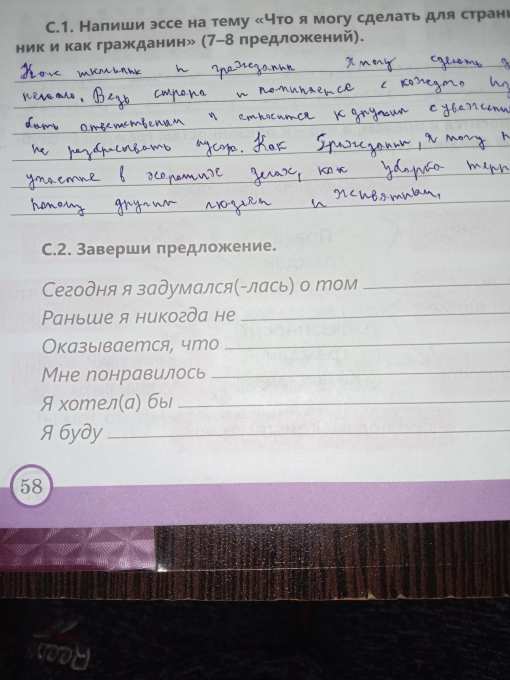 С.1. Напиши эссе на тему «Что я могу сделать для стран
ник и как гражданин» (7–8 предложений).
Как школьник и гражданин я могу сделать
немало. Ведь страна и начинается с каждого
быть ответственным и относится к другим с уважени
не разбрасывать мусор. Как гражданин, я могу
участие в хороших делах, как уборка терр
помощ другим людям и животным,
С.2. Заверши предложение.
Сегодня я задумался(-лась) о том
Раньше я никогда не
Оказывается, что
Мне понравилось
Я хотел(а) бы
Я буду
58